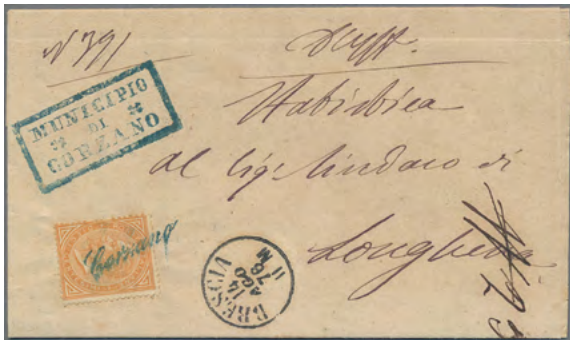 N 791
MUNICIPIO
DI
CORZANO
Statistica
al Sig. Sindaco di
Longhena
Corzano
BRESCIA
14
AGO
76
11 M